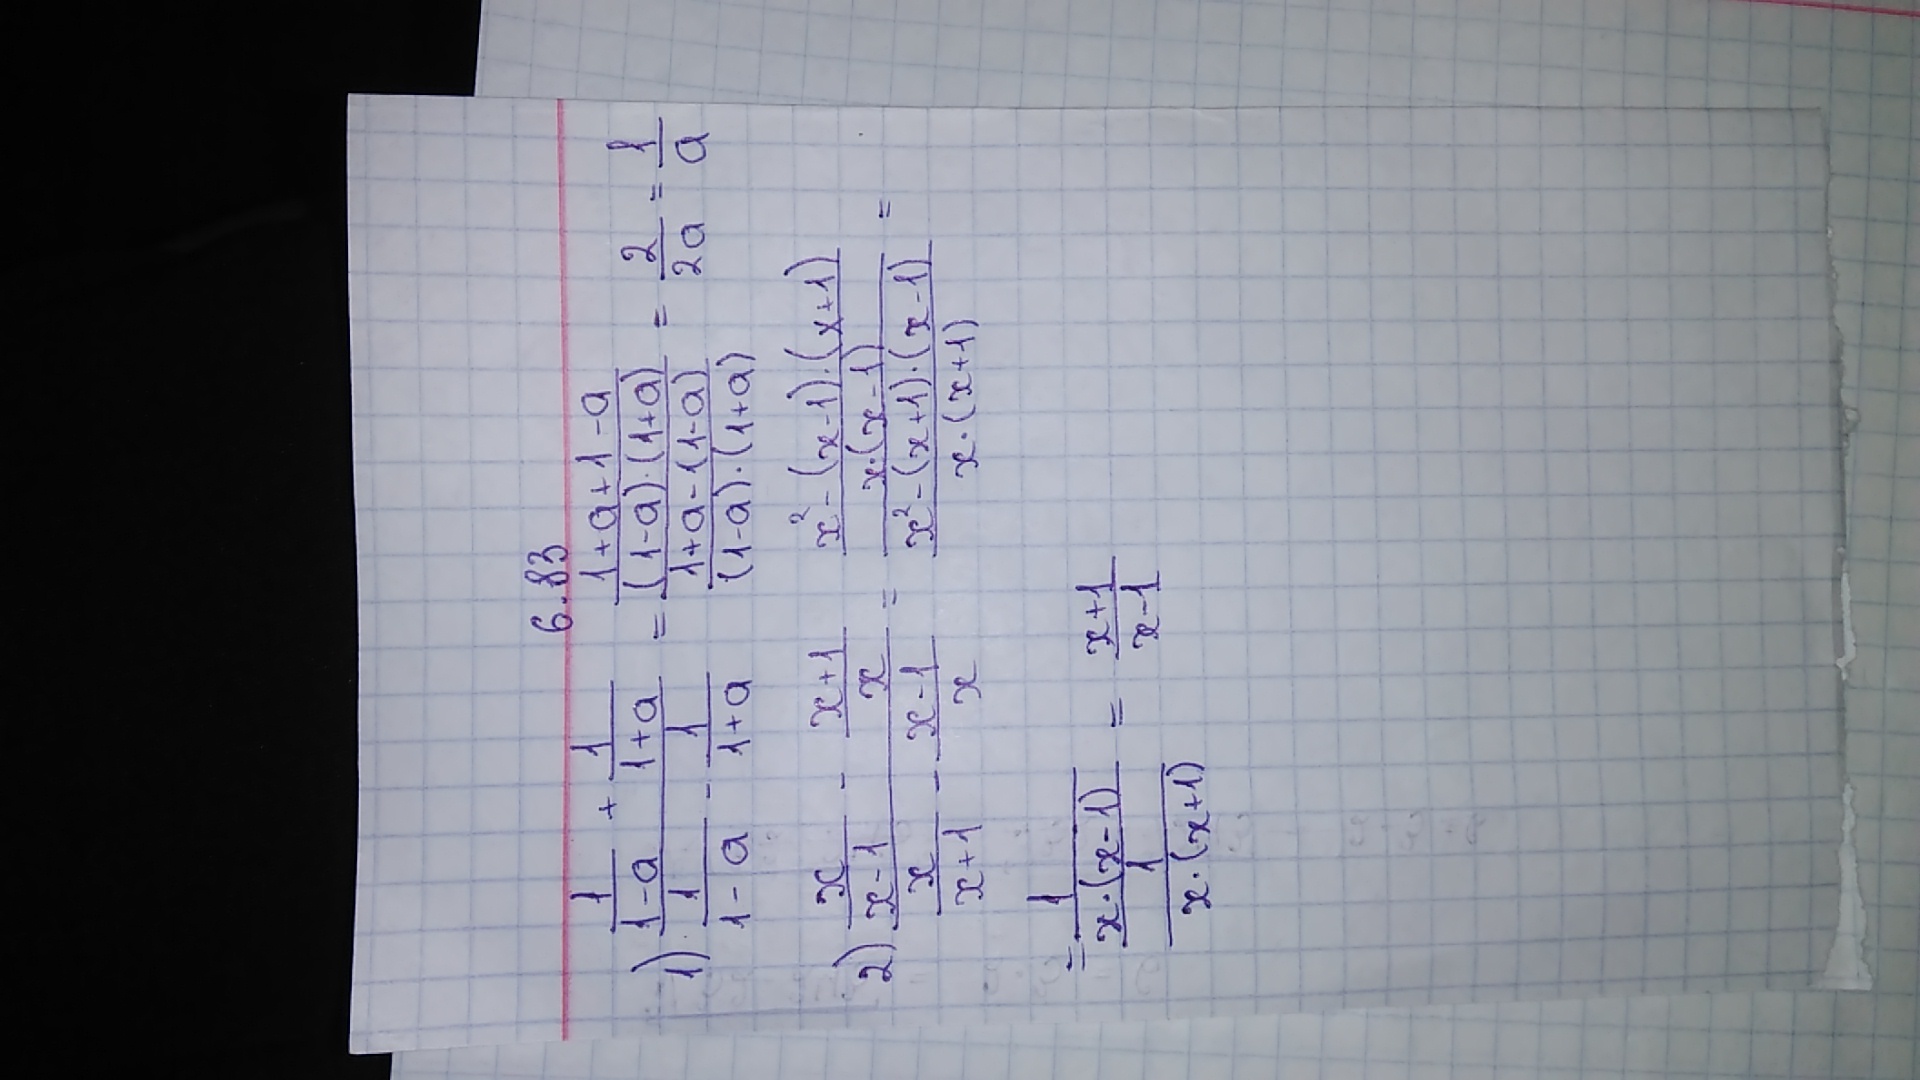 6.83
1) \frac{\frac{1}{1-a} + \frac{1}{1+a}}{\frac{1}{1-a} - \frac{1}{1+a}} = \frac{\frac{1+a+1-a}{(1-a)·(1+a)}}{\frac{1+a-(1-a)}{(1-a)·(1+a)}} = \frac{2}{2a} = \frac{1}{a}
2) \frac{\frac{x}{x-1} - \frac{x+1}{x}}{\frac{x}{x+1} - \frac{x-1}{x}} = \frac{\frac{x^2-(x-1)·(x+1)}{x·(x-1)}}{\frac{x^2-(x+1)·(x-1)}{x·(x+1)}} =
= \frac{\frac{1}{x·(x-1)}}{\frac{1}{x·(x+1)}} = \frac{x+1}{x-1}